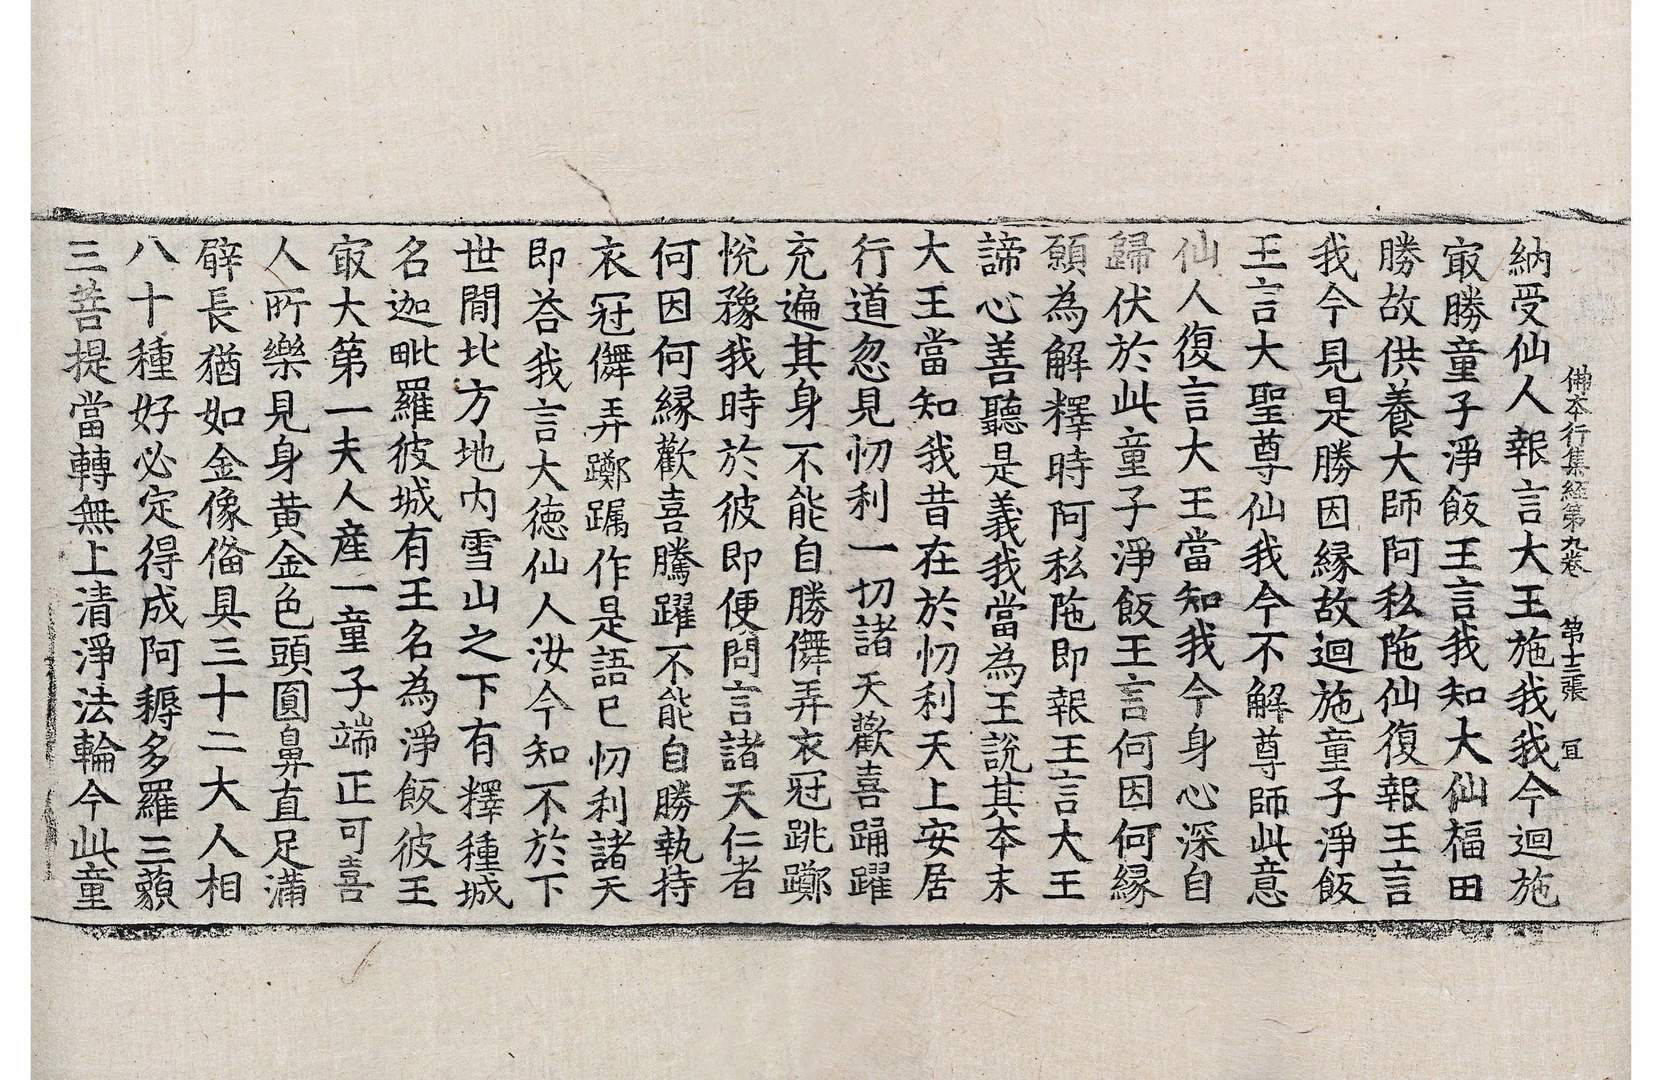 佛本行集經第九卷 第十三張 冝
納受仙人報言大王施我我今迴施
冣勝童子淨飯王言我知大仙福田
勝故供養大師阿私陁仙復報王言
我今見是勝因縁故迴施童子淨飯
王言大聖尊仙我今不解尊師此意
仙人復言大王當知我今身心深自
歸伏於此童子淨飯王言何因何縁
願為解釋時阿私陁即報王言大王
諦心善聽是義我當為王說其本末
大王當知我昔在於忉利天上安居
行道忽見忉利一切諸天歡喜踊躍
充遍其身不能自勝儛弄衣冠跳躑
恱豫我時於彼即便問言諸天仁者
何因何縁歡喜騰躍不能自勝執持
衣冠儛弄躑躅作是語已忉利諸天
即荅我言大徳仙人汝今知不於下
世閒北方地内雪山之下有釋種城
名迦毗羅彼城有王名為淨飯彼王
冣大第一夫人産一童子端正可喜
人所樂見身黄金色頭圓鼻直足滿
臂長猶如金像偹具三十二大人相
八十種好必定得成阿耨多羅三藐
三菩提當轉無上清淨法輪今此童